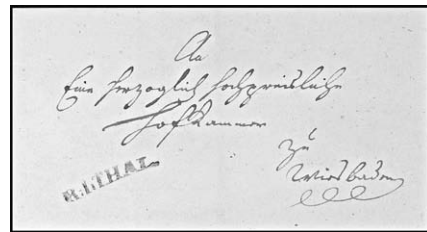 An
Eine Herzoglich Hochpreisliche
Hofkammer
zu
Wiesbaden